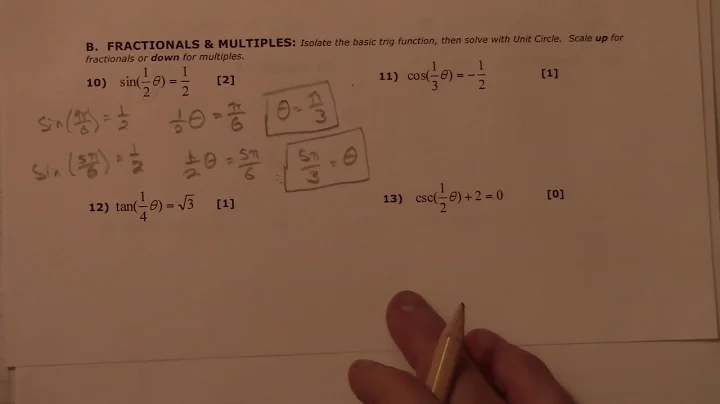 B. FRACTIONALS & MULTIPLES: Isolate the basic trig function, then solve with Unit Circle. Scale up for
fractionals or down for multiples.
10) sin(1/2 θ) = 1/2 [2]
11) cos(1/3 θ) = -1/2 [1]
sin(π/6) = 1/2 1/2 θ = π/6 θ = π/3
sin(5π/6) = 1/2 1/2 θ = 5π/6 5π/3 = θ
12) tan(1/4 θ) = √3 [1]
13) csc(1/2 θ) + 2 = 0 [0]